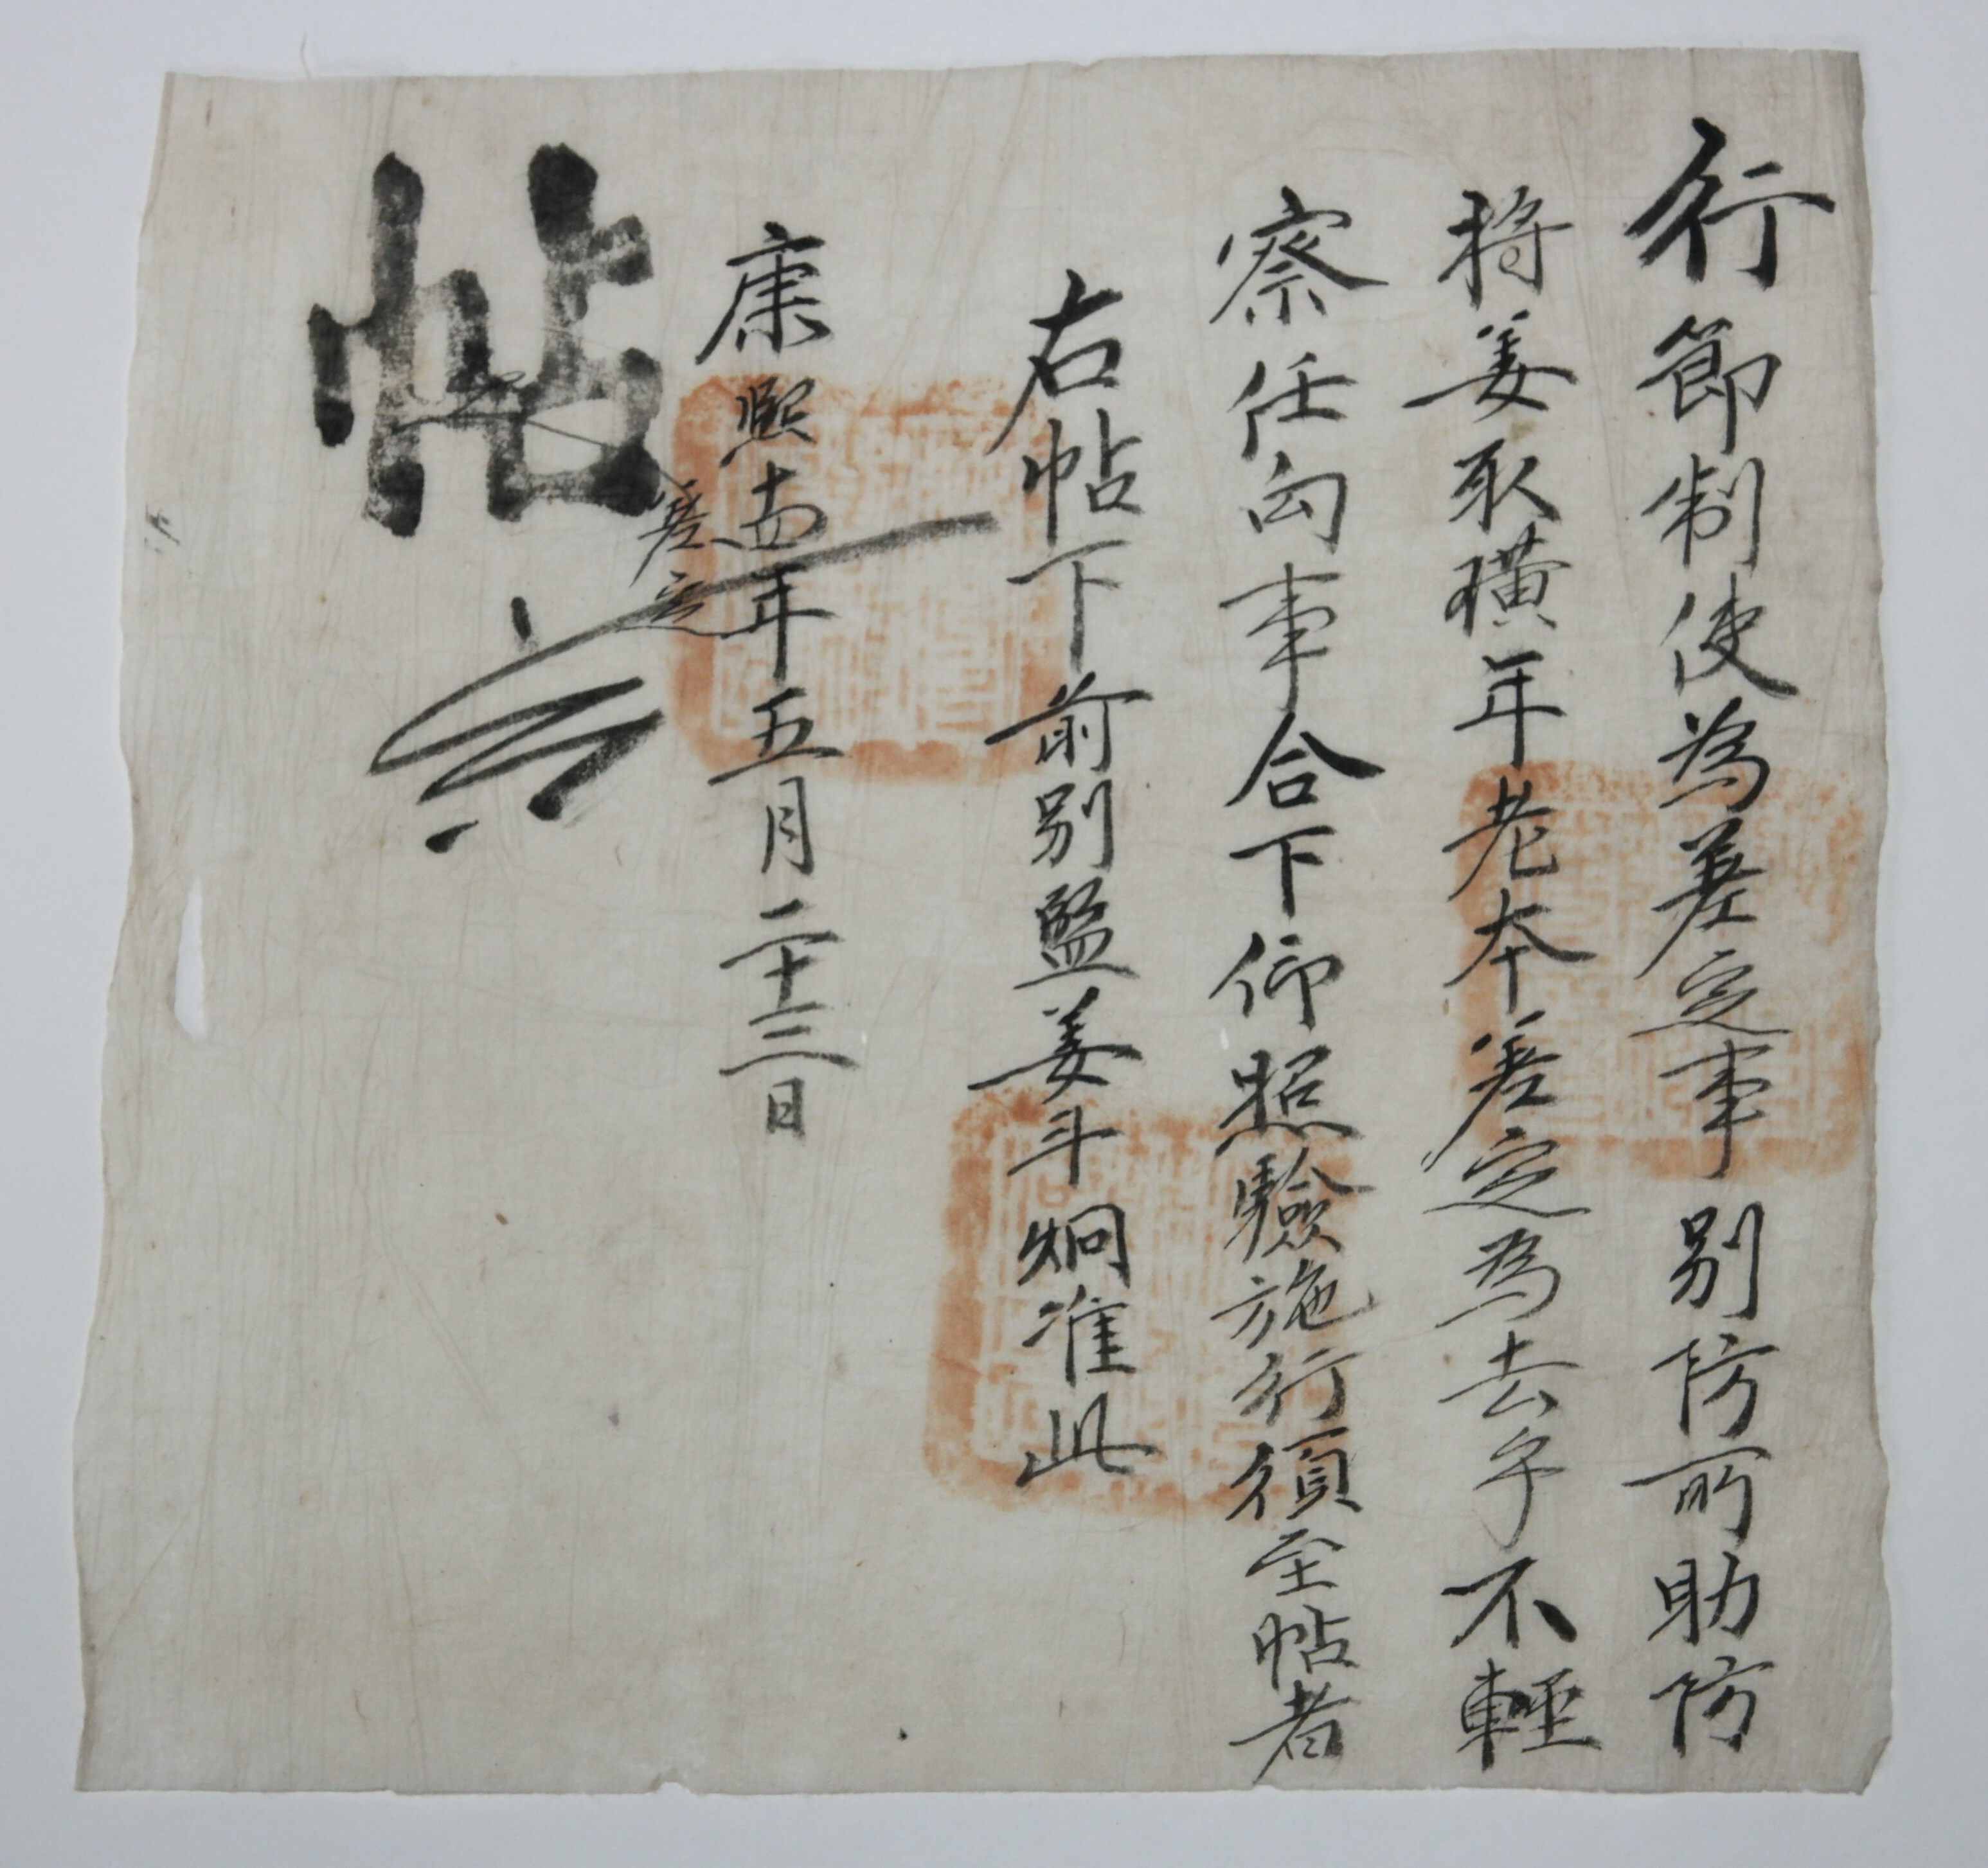 行節制使為差定事別防所助防
將姜取璜年老本差定為去乎不輕
察任向事合下仰照驗施行須至帖者
右帖下前別監姜斗炯准此
康熙十四年五月二十三日
差定
帖